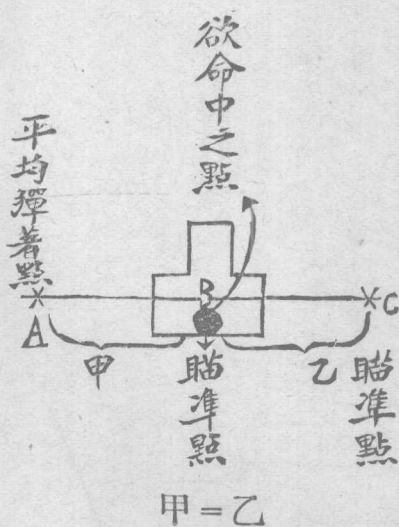 欲命中之點
平均彈著點
B
A
C
甲
瞄準點
乙
瞄準點
甲=乙